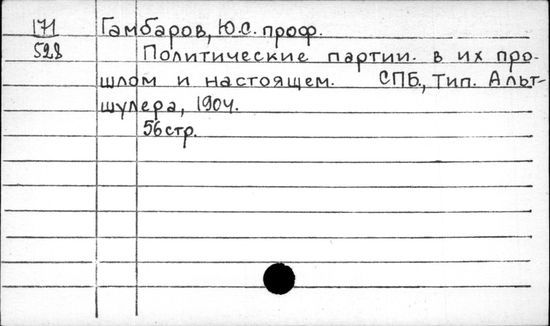 171
528
Гамбаров, Ю.С. проф.
Политические партии. в их про-
шлом и настоящем. СПБ., Тип. Альт-
шулера, 1904.
56 стр.